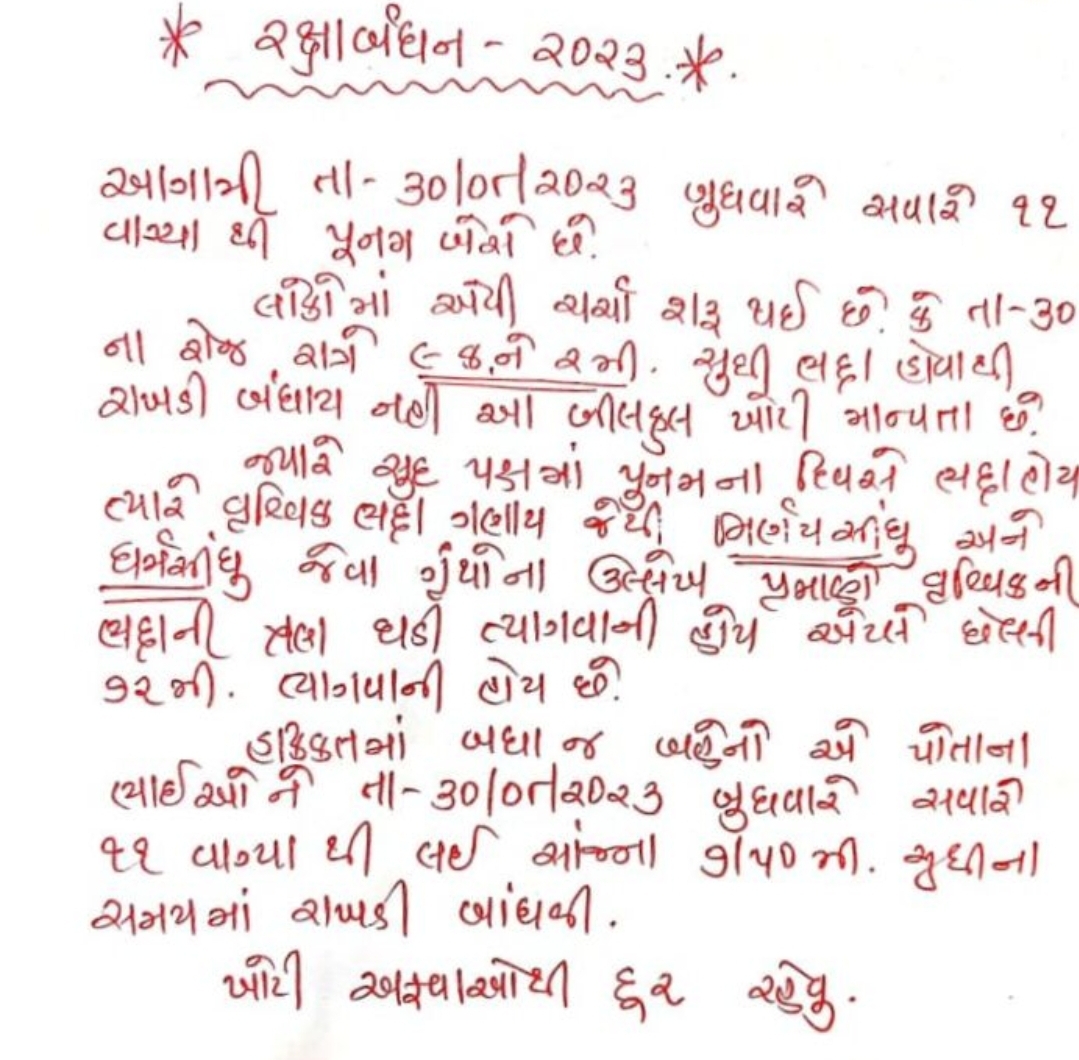 * રક્ષાબંધન - ૨૦૨૩.*.
આગામી તા- ૩૦/૦૮/૨૦૨૩ બુધવારે સવારે ૧૧
વાગ્યા થી પૂનમ બેસે છે.
લોકોમાં એવી ચર્ચા શરૂ થઈ છે. કે તા-૩૦
ના રોજ રાત્રે ૯ ક.ને ૨ મી. સુધી ભદ્રા હોવાથી
રાખડી બંધાય નહી આ બીલકુલ ખોટી માન્યતા છે.
જ્યારે સુદ પક્ષમાં પુનમના દિવસે ભદ્રા હોય
ત્યારે વૃશ્ચિક ભદ્રા ગણાય જેથી નિર્ણયસીંધુ અને
ધર્મસીંધુ જેવા ગ્રંથોના ઉલ્લેખ પ્રમાણે વૃશ્ચિકની
ભદ્રાની ત્રણ ઘડી ત્યાગવાની હોય એટલે છેલ્લી
૭૨ મી. ત્યાગવાની હોય છે.
હકિકતમાં બધા જ બહેનો એ પોતાના
ભાઈઓ ને તા-૩૦/૦૮/૨૦૨૩ બુધવારે સવારે
૧૧ વાગ્યા થી લઈ સાંજના ૭/૫૦ મી. સુધીના
સમયમાં રાખડી બાંધવી.
ખોટી અફવાઓથી દૂર રહેવુ.